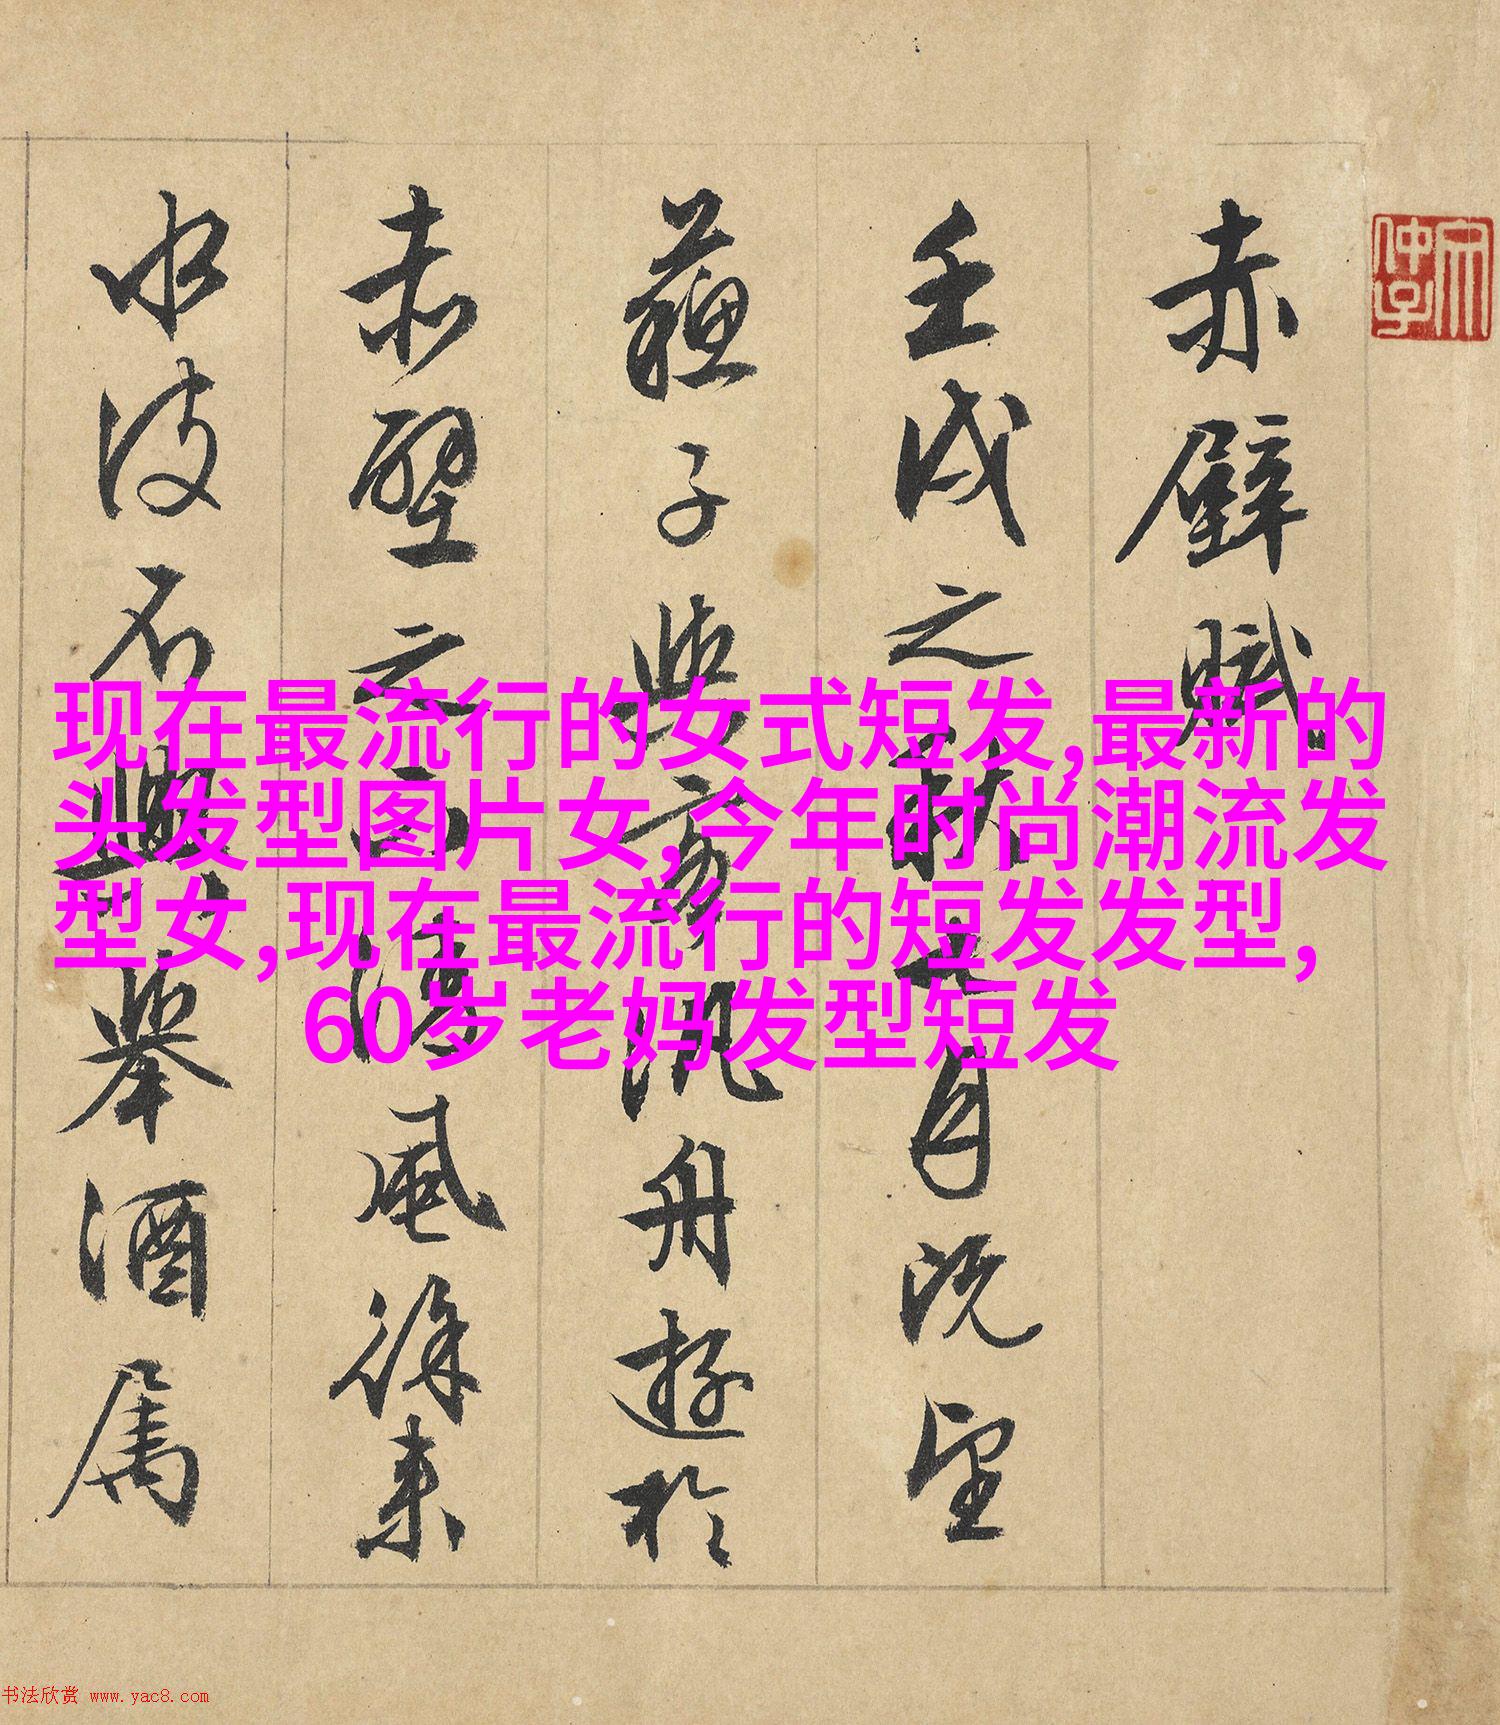 赤壁賦
壬戌之秋七月既望
蘇子與客泛舟遊於
赤壁之下清風徐來
水波不興舉酒属
现在最流行的女式短发,最新的
头发型图片女,今年时尚潮流发
型女,现在最流行的短发发型,
60岁老妈发型短发
书法欣赏 www.yac8.com